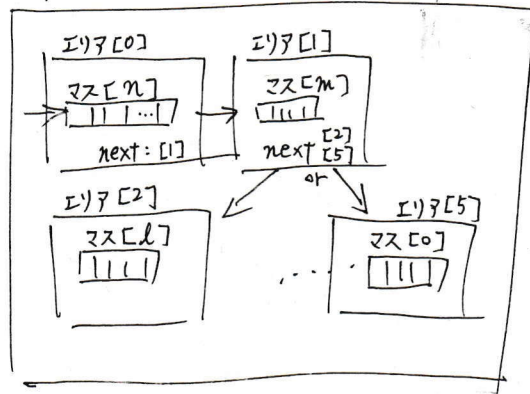 エリア[0]
マス[n]
next:[1]
エリア[1]
マス[m]
next [2]
[5]
or
エリア[2]
マス[l]
エリア[5]
マス[o]